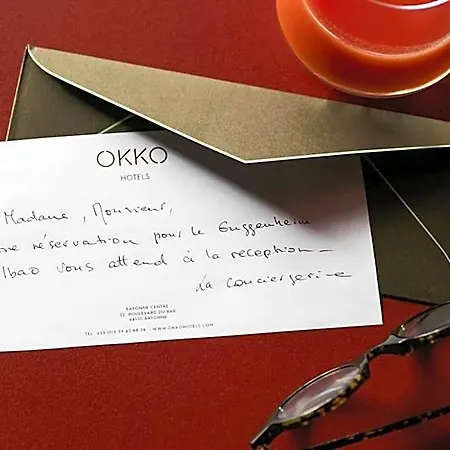 OKKO
HOTELS
Madame, Monsieur,
réservation pour le Guggenheim
vous attend à la réception –
La Conciergerie
BAYONNE CENTRE
22, BOULEVARD DU BAB
64100 BAYONNE
TEL. +33 (0)5 59 42 88 38 WWW.OKKOHOTELS.COM